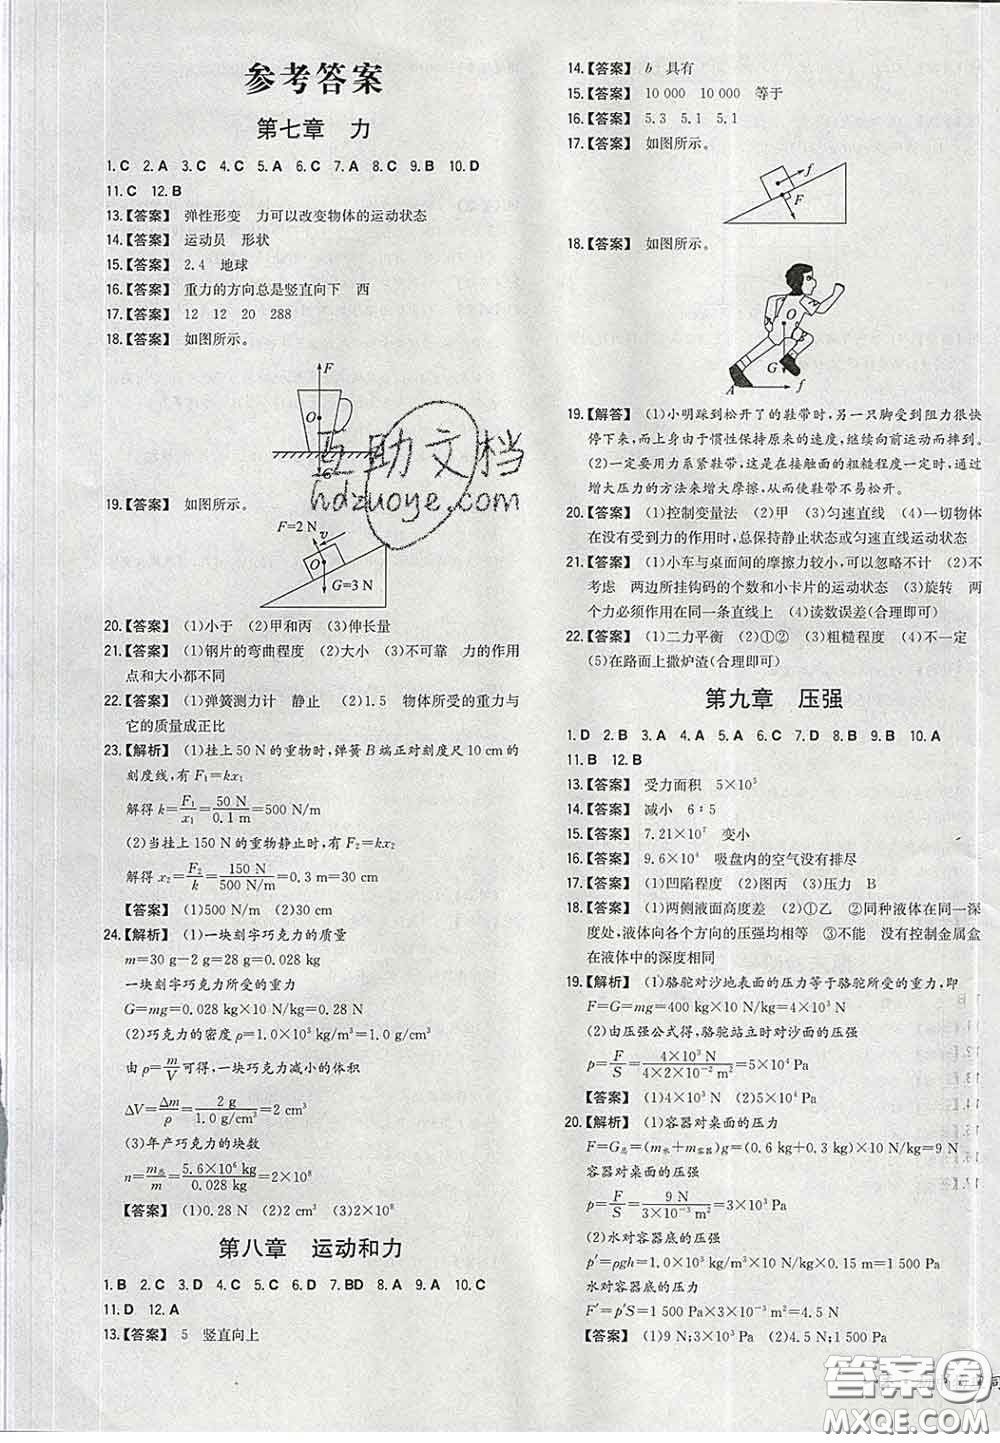 参考答案
第七章 力
1. C 2. A 3. C 4. C 5. A 6. C 7. A 8. C 9. B 10. D
11. C 12. B
13.【答案】 弹性形变 力可以改变物体的运动状态
14.【答案】 运动员 形状
15.【答案】 2.4 地球
16.【答案】 重力的方向总是竖直向下 西
17.【答案】 12 12 20 288
18.【答案】 如图所示。
F
O
G
19.【答案】 如图所示。
F=2 N
v
O
G=3 N
20.【答案】 (1)小于 (2)甲和丙 (3)伸长量
21.【答案】 (1)钢片的弯曲程度 (2)大小 (3)不可靠 力的作用
点和大小都不同
22.【答案】 (1)弹簧测力计 静止 (2)1.5 物体所受的重力与
它的质量成正比
23.【解析】 (1)挂上 50 N 的重物时,弹簧 B 端正对刻度尺 10 cm 的
刻度线,有 F₁=kx₁
解得 k=F₁/x₁=50 N/0.1 m=500 N/m
(2)当挂上 150 N 的重物静止时,有 F₂=kx₂
解得 x₂=F₂/k=150 N/500 N/m=0.3 m=30 cm
【答案】 (1)500 N/m (2)30 cm
24.【解析】 (1)一块刻字巧克力的质量
m=30 g-2 g=28 g=0.028 kg
一块刻字巧克力所受的重力
G=mg=0.028 kg×10 N/kg=0.28 N
(2)巧克力的密度 ρ=1.0×10³ kg/m³=1.0 g/cm³
由 ρ=m/V 可得,一块巧克力减小的体积
ΔV=Δm/ρ=2 g/1.0 g/cm³=2 cm³
(3)年产巧克力的块数
n=m总/m=5.6×10⁶ kg/0.028 kg=2×10⁸
【答案】 (1)0.28 N (2)2 cm³ (3)2×10⁸
第八章 运动和力
1. B 2. C 3. D 4. C 5. C 6. D 7. BD 8. A 9. A 10. C
11. D 12. A
13.【答案】 5 竖直向上
14.【答案】 b 具有
15.【答案】 10 000 10 000 等于
16.【答案】 5.3 5.1 5.1
17.【答案】 如图所示。
f
F
18.【答案】 如图所示。
O
G
A
f
19.【解答】 (1)小明踩到松开了的鞋带时,另一只脚受到阻力很快
停下来,而上身由于惯性保持原来的速度,继续向前运动而摔到。
(2)一定要用力系紧鞋带,这是在接触面的粗糙程度一定时,通过
增大压力的方法来增大摩擦,从而使鞋带不易松开。
20.【答案】 (1)控制变量法 (2)甲 (3)匀速直线 (4)一切物体
在没有受到力的作用时,总保持静止状态或匀速直线运动状态
21.【答案】 (1)小车与桌面间的摩擦力较小,可以忽略不计 (2)不
考虑 两边所挂钩码的个数和小卡片的运动状态 (3)旋转 两
个力必须作用在同一条直线上 (4)读数误差(合理即可)
22.【答案】 (1)二力平衡 (2)①② (3)粗糙程度 (4)不一定
(5)在路面上撒炉渣(合理即可)
第九章 压强
1. D 2. B 3. A 4. A 5. A 6. C 7. D 8. B 9. B 10. A
11. B 12. B
13.【答案】 受力面积 5×10⁵
14.【答案】 减小 6∶5
15.【答案】 7.21×10⁷ 变小
16.【答案】 9.6×10⁴ 吸盘内的空气没有排尽
17.【答案】 (1)凹陷程度 (2)图丙 (3)压力 B
18.【答案】 (1)两侧液面高度差 (2)①乙 ②同种液体在同一深
度处,液体向各个方向的压强均相等 ③不能 没有控制金属盒
在液体中的深度相同
19.【解析】 (1)骆驼对沙地表面的压力等于骆驼所受的重力,即
F=G=mg=400 kg×10 N/kg=4×10³ N
(2)由压强公式得,骆驼站立时对沙面的压强
p=F/S=4×10³ N/4×2×10⁻² m²=5×10⁴ Pa
【答案】 (1)4×10³ N (2)5×10⁴ Pa
20.【解析】 (1)容器对桌面的压力
F=G总=(m水+m容器)g=(0.6 kg+0.3 kg)×10 N/kg=9 N
容器对桌面的压强
p=F/S=9 N/3×10⁻³ m²=3×10³ Pa
(2)水对容器底的压强
p′=ρgh=1.0×10³ kg/m³×10 N/kg×0.15 m=1 500 Pa
水对容器底的压力
F′=p′S=1 500 Pa×3×10⁻³ m²=4.5 N
【答案】 (1)9 N;3×10³ Pa (2)4.5 N;1 500 Pa
互助文档
hdzuoye.com
答案圈
MXQE.COM